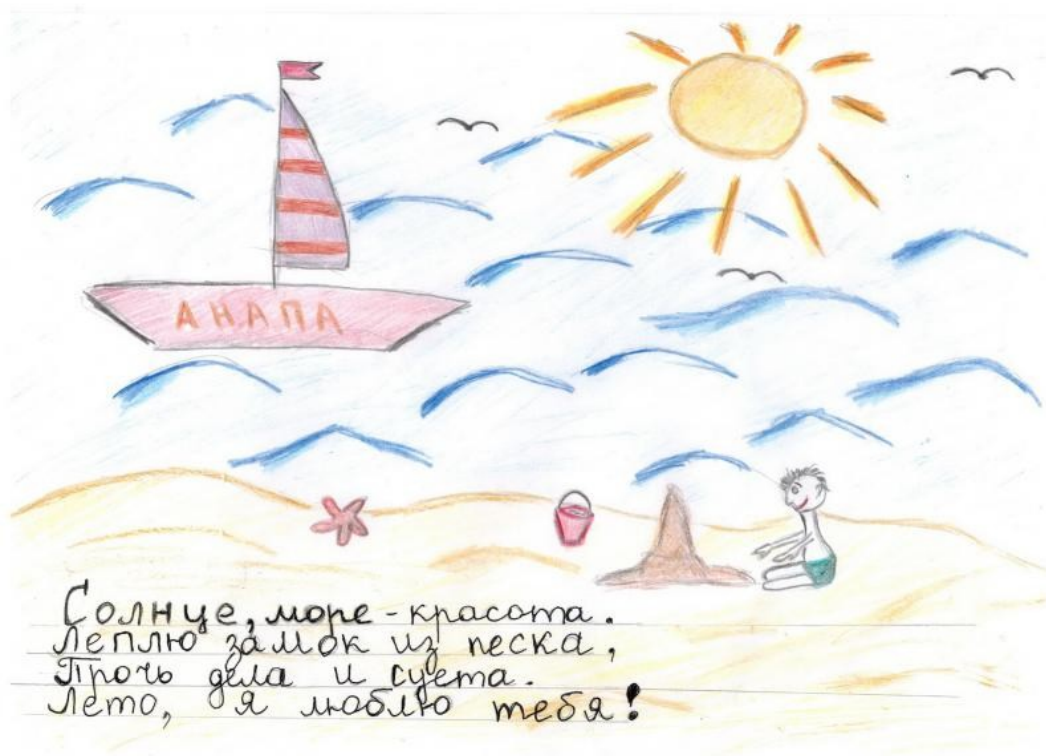 АНАПА
Солнце, море - красота.
Леплю замок из песка,
Прочь дела и суета.
Лето, я люблю тебя!